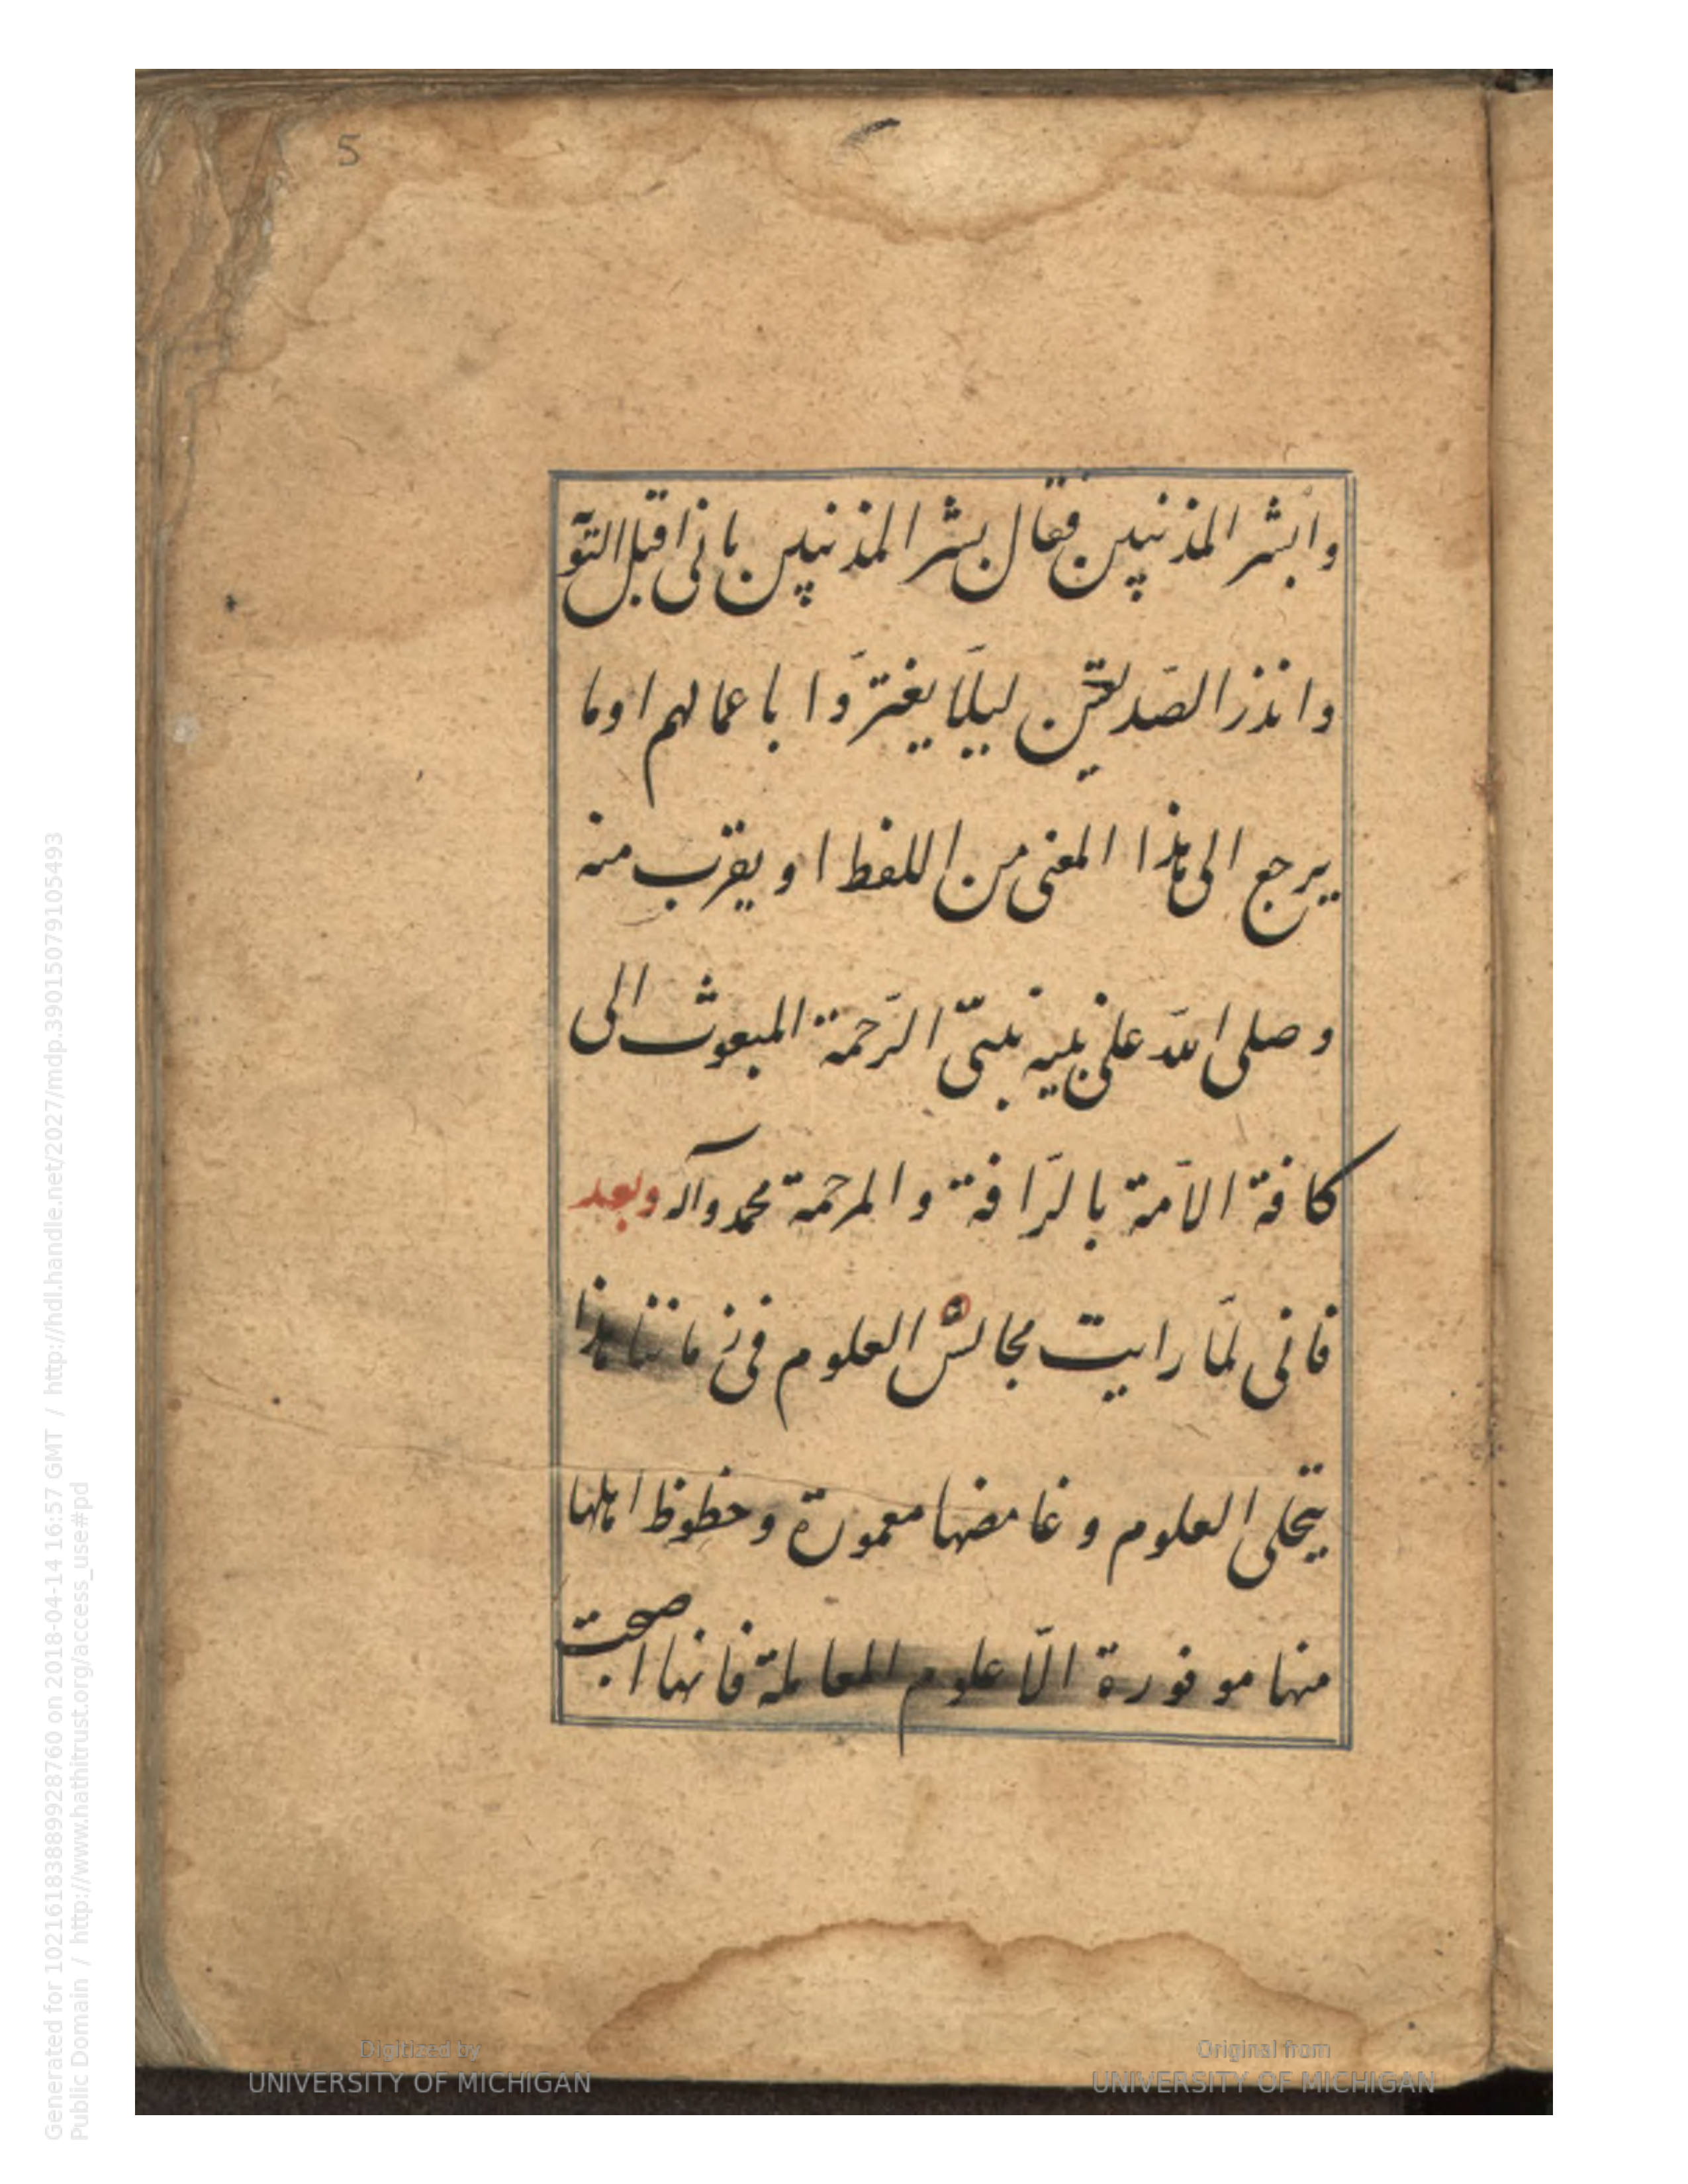 5
وابشر المذنبین فقال بشر المذنبین بانی اقبل التو
وانذر الصّدیقین لیلّا یغترّوا باعمالهم او ما
یرجع الی هذا المعنی من اللفظ او یقرب منه
وصلی اللّه علی نبیه نبیّ الرّحمة المبعوث الی
کافة الامّة بالرّافة والمرحمة محمد وآله وبعد
فانی لمّا رایت مجالس العلوم فی زماننا هذا
بتجلی العلوم و غامضها معمورة وحظوظ اهلها
منها موفورة الّا علوم المعاملة فانها اصبحت
Digitized by
UNIVERSITY OF MICHIGAN
Original from
UNIVERSITY OF MICHIGAN
Generated for 102161838899928760 on 2018-04-14 16:57 GMT / http://hdl.handle.net/2027/mdp.39015079105493
Public Domain / http://www.hathitrust.org/access_use#pd